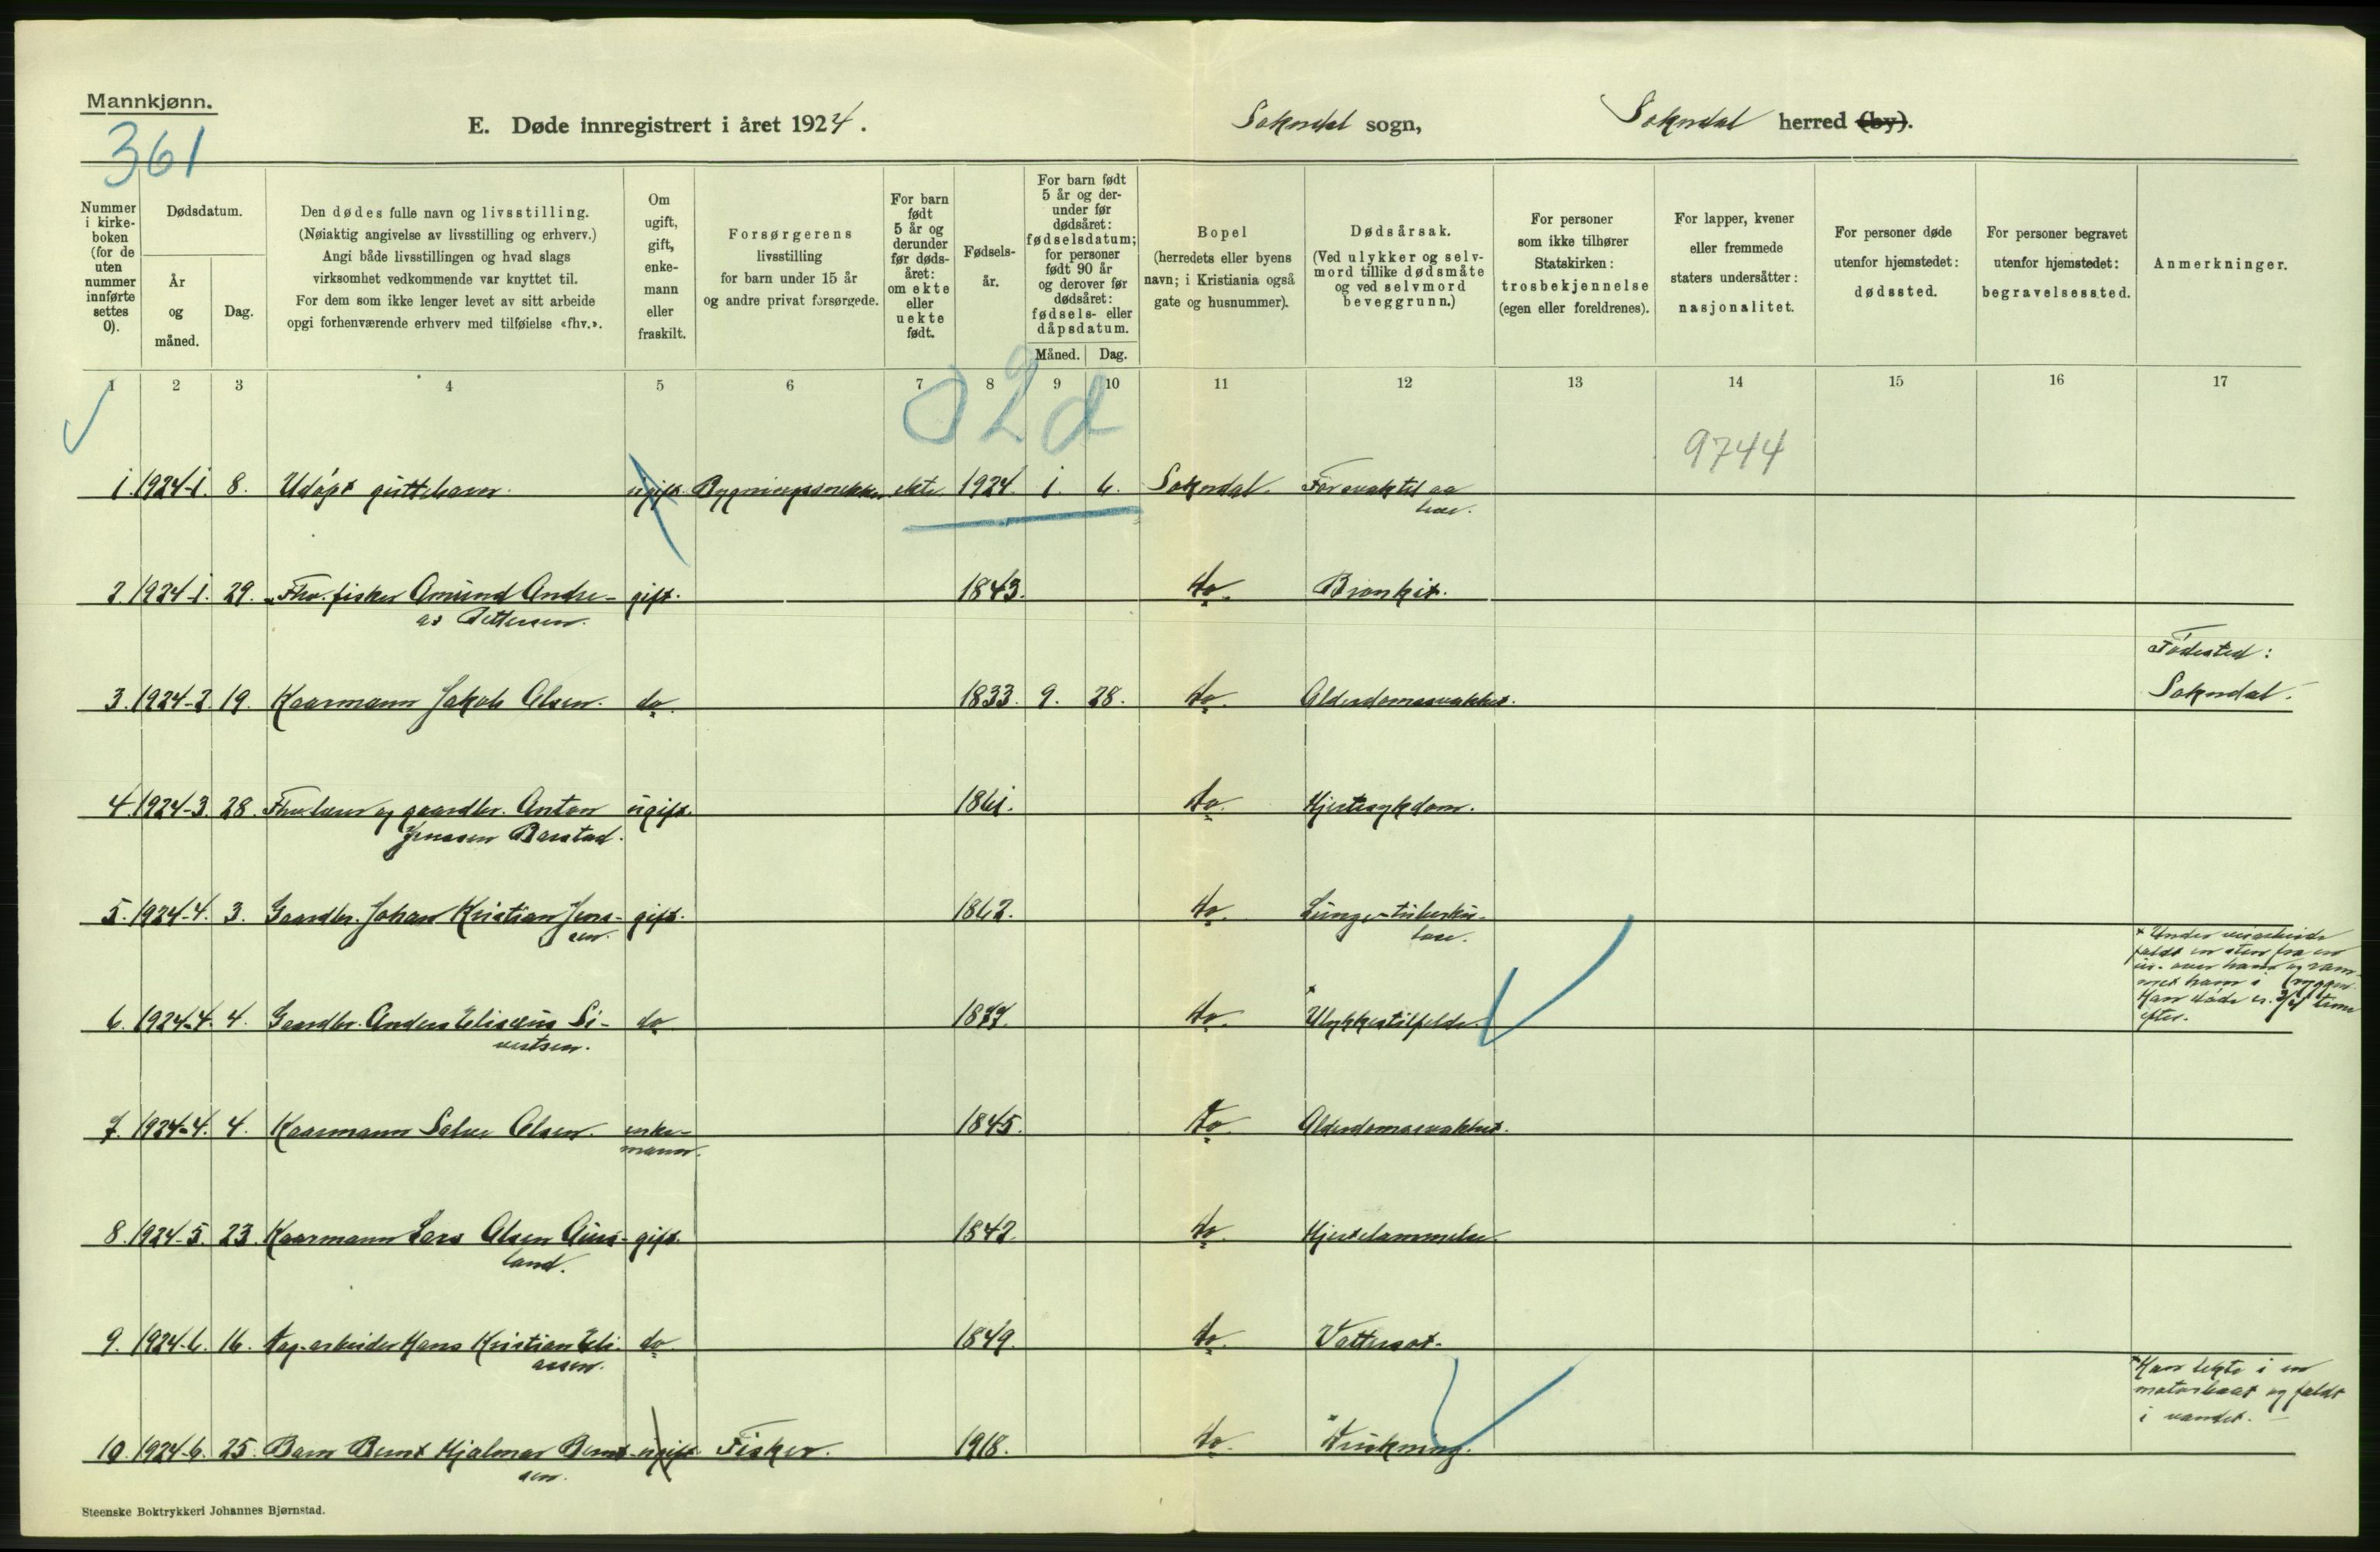 Mannkjønn.
361
E. Døde innregistrert i året 1924.
Sokndal sogn,
Sokndal herred (by).
Nummer i kirke-boken (for de uten nummer innførte settes 0).
Dødsdatum.
År og måned.
Dag.
Den dødes fulle navn og livsstilling.
(Nøiaktig angivelse av livsstilling og erhverv.)
Angi både livsstillingen og hvad slags
virksomhet vedkommende var knyttet til.
For dem som ikke lenger levet av sitt arbeide
opgi forhenværende erhverv med tilføielse «fhv.».
Om ugift, gift, enke-mann eller fraskilt.
Forsørgerens
livsstilling
for barn under 15 år
og andre privat forsørgede.
For barn født 5 år og derunder før døds-året: om ekte eller uekte født.
Fødsels-år.
For barn født 5 år og der-under før dødsåret: fødselsdatum; for personer født 90 år og derover før dødsåret: fødsels- eller dåpsdatum.
Måned. Dag.
Bopel
(herredets eller byens
navn; i Kristiania også
gate og husnummer).
Dødsårsak.
(Ved ulykker og selv-
mord tillike dødsmåte
og ved selvmord
beveggrunn.)
For personer
som ikke tilhører
Statskirken:
trosbekjennelse
(egen eller foreldrenes).
For lapper, kvener
eller fremmede
staters undersåtter:
nasjonalitet.
For personer døde
utenfor hjemstedet:
dødssted.
For personer begravet
utenfor hjemstedet:
begravelsessted.
Anmerkninger.
1 2 3 4 5 6 7 8 9 10 11 12 13 14 15 16 17
02d
9744
1. 1924-1. 8. Udøpt guttebarn. ugift. Bygningssnekker ekte 1924. 1. 6. Sokndal. For svak til aa
leve.
2. 1924-1. 29. Fhv. fisker Amund Andre- gift. 1843. do. Bronkit.
as Pettersen.
Fødested:
3. 1924-2. 19. Kaarmann Jakob Olsen. do. 1833. 9. 28. do. Alderdomssvakhet. Sokndal.
4. 1924-3. 28. Fhv. lærer og gaardbr. Anton ugift. 1861. do. Hjertesykdom.
Jenssen Barstad.
5. 1924-4. 3. Gaardbr. Johan Kristian Jens- gift. 1862. do. Lunge-tuberku-
sen. lose.
* Under veiarbeide
faldt en sten fra en
ur over ham og ram-
met ham i ryggen.
Han døde ca. 3/4 time
efter.
6. 1924-4. 4. Gaardbr. Anders Elisæus Si- do. 1877. do. * Ulykkestilfelde.
vertsen.
7. 1924-4. 4. Kaarmann Salve Olsen. enke- 1845. do. Alderdomssvakhet.
mann.
8. 1924-5. 23. Kaarmann Lars Olsen Aurs- gift. 1842. do. Hjertelammelse.
land.
9. 1924-6. 16. Dag-arbeider Hans Kristian Eli- do. 1849. do. Vattersot.
assen.
* Han lekte i en
motorbaat og faldt
i vandet.
10. 1924-6. 25. Barn Bernt Hjalmar Bernt- ugift. Fisker. 1918. do. * Drukning.
sen.
Steenske Boktrykkeri Johannes Bjørnstad.